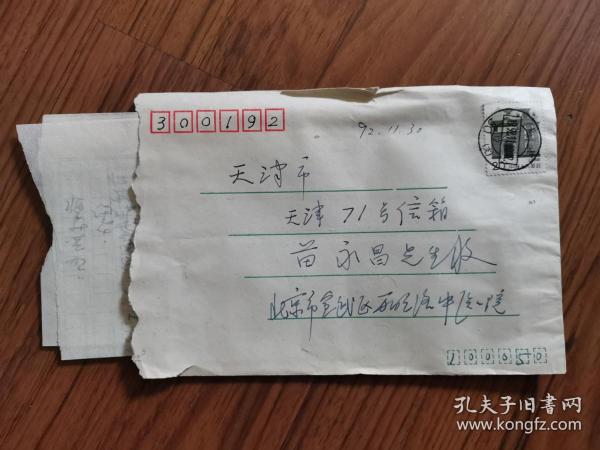 300192
92.11.30
天津市
天津71号信箱
苗永昌先生收
北京市宣武区 中医院
100050
孔夫子旧書网
www.kongfz.com